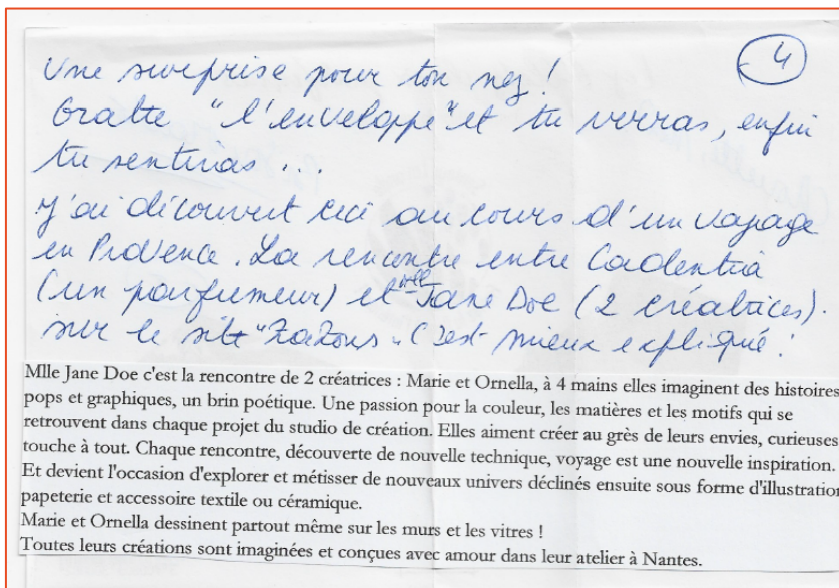 4
Une surprise pour ton nez !
Gratte "l'enveloppe" et tu verras, enfin
tu sentiras ...
J'ai découvert ceci au cours d'un voyage
en Provence. La rencontre entre Cadentia
(un parfumeur) et Mlle Jane Doe (2 créatrices).
sur le site "Zazous". C'est mieux expliqué !
Mlle Jane Doe c'est la rencontre de 2 créatrices : Marie et Ornella, à 4 mains elles imaginent des histoires
pops et graphiques, un brin poétique. Une passion pour la couleur, les matières et les motifs qui se
retrouvent dans chaque projet du studio de création. Elles aiment créer au grès de leurs envies, curieuses
touche à tout. Chaque rencontre, découverte de nouvelle technique, voyage est une nouvelle inspiration.
Et devient l'occasion d'explorer et métisser de nouveaux univers déclinés ensuite sous forme d'illustration
papeterie et accessoire textile ou céramique.
Marie et Ornella dessinent partout même sur les murs et les vitres !
Toutes leurs créations sont imaginées et conçues avec amour dans leur atelier à Nantes.